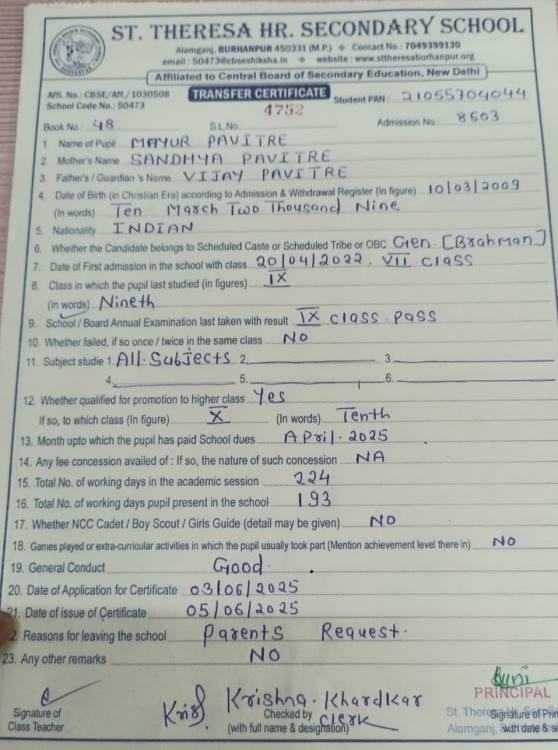 ST. THERESA HR. SECONDARY SCHOOL
Alamganj, BURHANPUR 450331 (M.P.) Contact No : 7049399130
email : 50473@cbseshiksha.in website : www.sttheresaburhanpur.org
Affiliated to Central Board of Secondary Education, New Delhi
Affi. No.: CBSE/Aff./1030508 TRANSFER CERTIFICATE Student PAN: 21055704044
School Code No.: 50473 4752
Book No. 48 S.L.No. Admission No. 8603
1. Name of Pupil MAYUR PAVITRE
2. Mother's Name SANDHYA PAVITRE
3. Father's / Guardian 's Name VIJAY PAVITRE
4. Date of Birth (in Christian Era) according to Admission & Withdrawal Register (In figure) 10/03/2009
(In words) Ten March Two Thousand Nine
5. Nationality INDIAN
6. Whether the Candidate belongs to Scheduled Caste or Scheduled Tribe or OBC Gen [Brahman]
7. Date of First admission in the school with class 20/04/2022, VII class
8. Class in which the pupil last studied (in figures) IX
(In words) Nineth
9. School / Board Annual Examination last taken with result IX class pass
10. Whether failed, if so once / twice in the same class NO
11. Subject studie 1. All Subjects 2. 3.
4. 5. 6.
12. Whether qualified for promotion to higher class Yes
If so, to which class (In figure) X (In words) Tenth
13. Month upto which the pupil has paid School dues April. 2025
14. Any fee concession availed of : If so, the nature of such concession NA
15. Total No. of working days in the academic session 224
16. Total No. of working days pupil present in the school 193
17. Whether NCC Cadet / Boy Scout / Girls Guide (detail may be given) NO
18. Games played or extra-curricular activities in which the pupil usually took part (Mention achievement level there in) NO
19. General Conduct Good.
20. Date of Application for Certificate 03/06/2025
21. Date of issue of Certificate 05/06/2025
2. Reasons for leaving the school Parents Request.
23. Any other remarks NO
PRINCIPAL
Krishna. Khardkar
Signature of Checked by Clerk St. There Signature of Prin
Class Teacher (with full name & designation) Alamganj, with date &